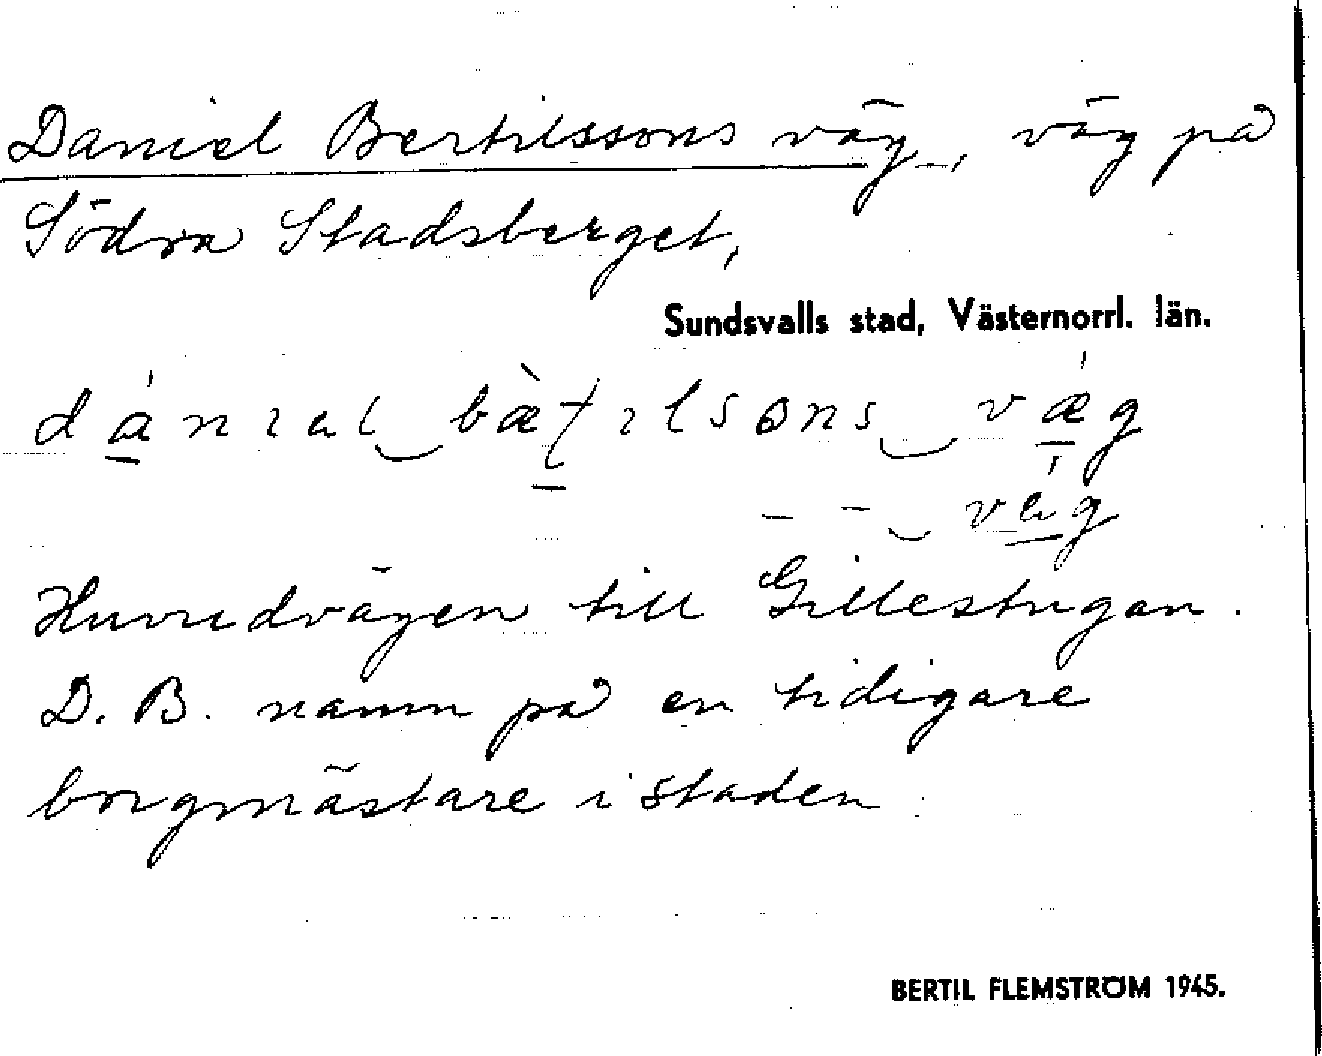 Daniel Bertilssons väg, väg på
Södra Stadsberget,
Sundsvalls stad, Västernorrl. län.
dánıal‿bæ̀ʈılsons‿vǽg
– –‿vág
Huvudvägen till Gillestugan.
D. B. namn på en tidigare
borgmästare i staden.
BERTIL FLEMSTRÖM 1945.